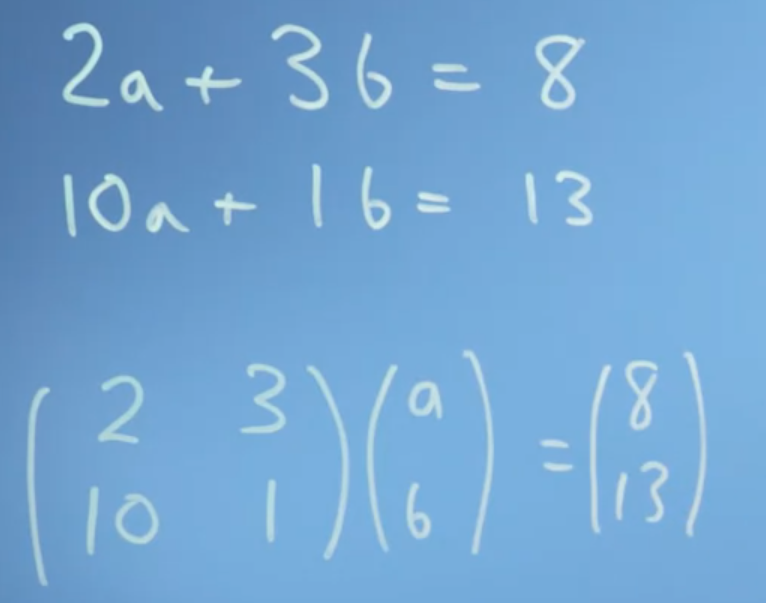 2a + 3b = 8
10a + 1b = 13
(2 3) (a) = (8)
(10 1) (b) (13)